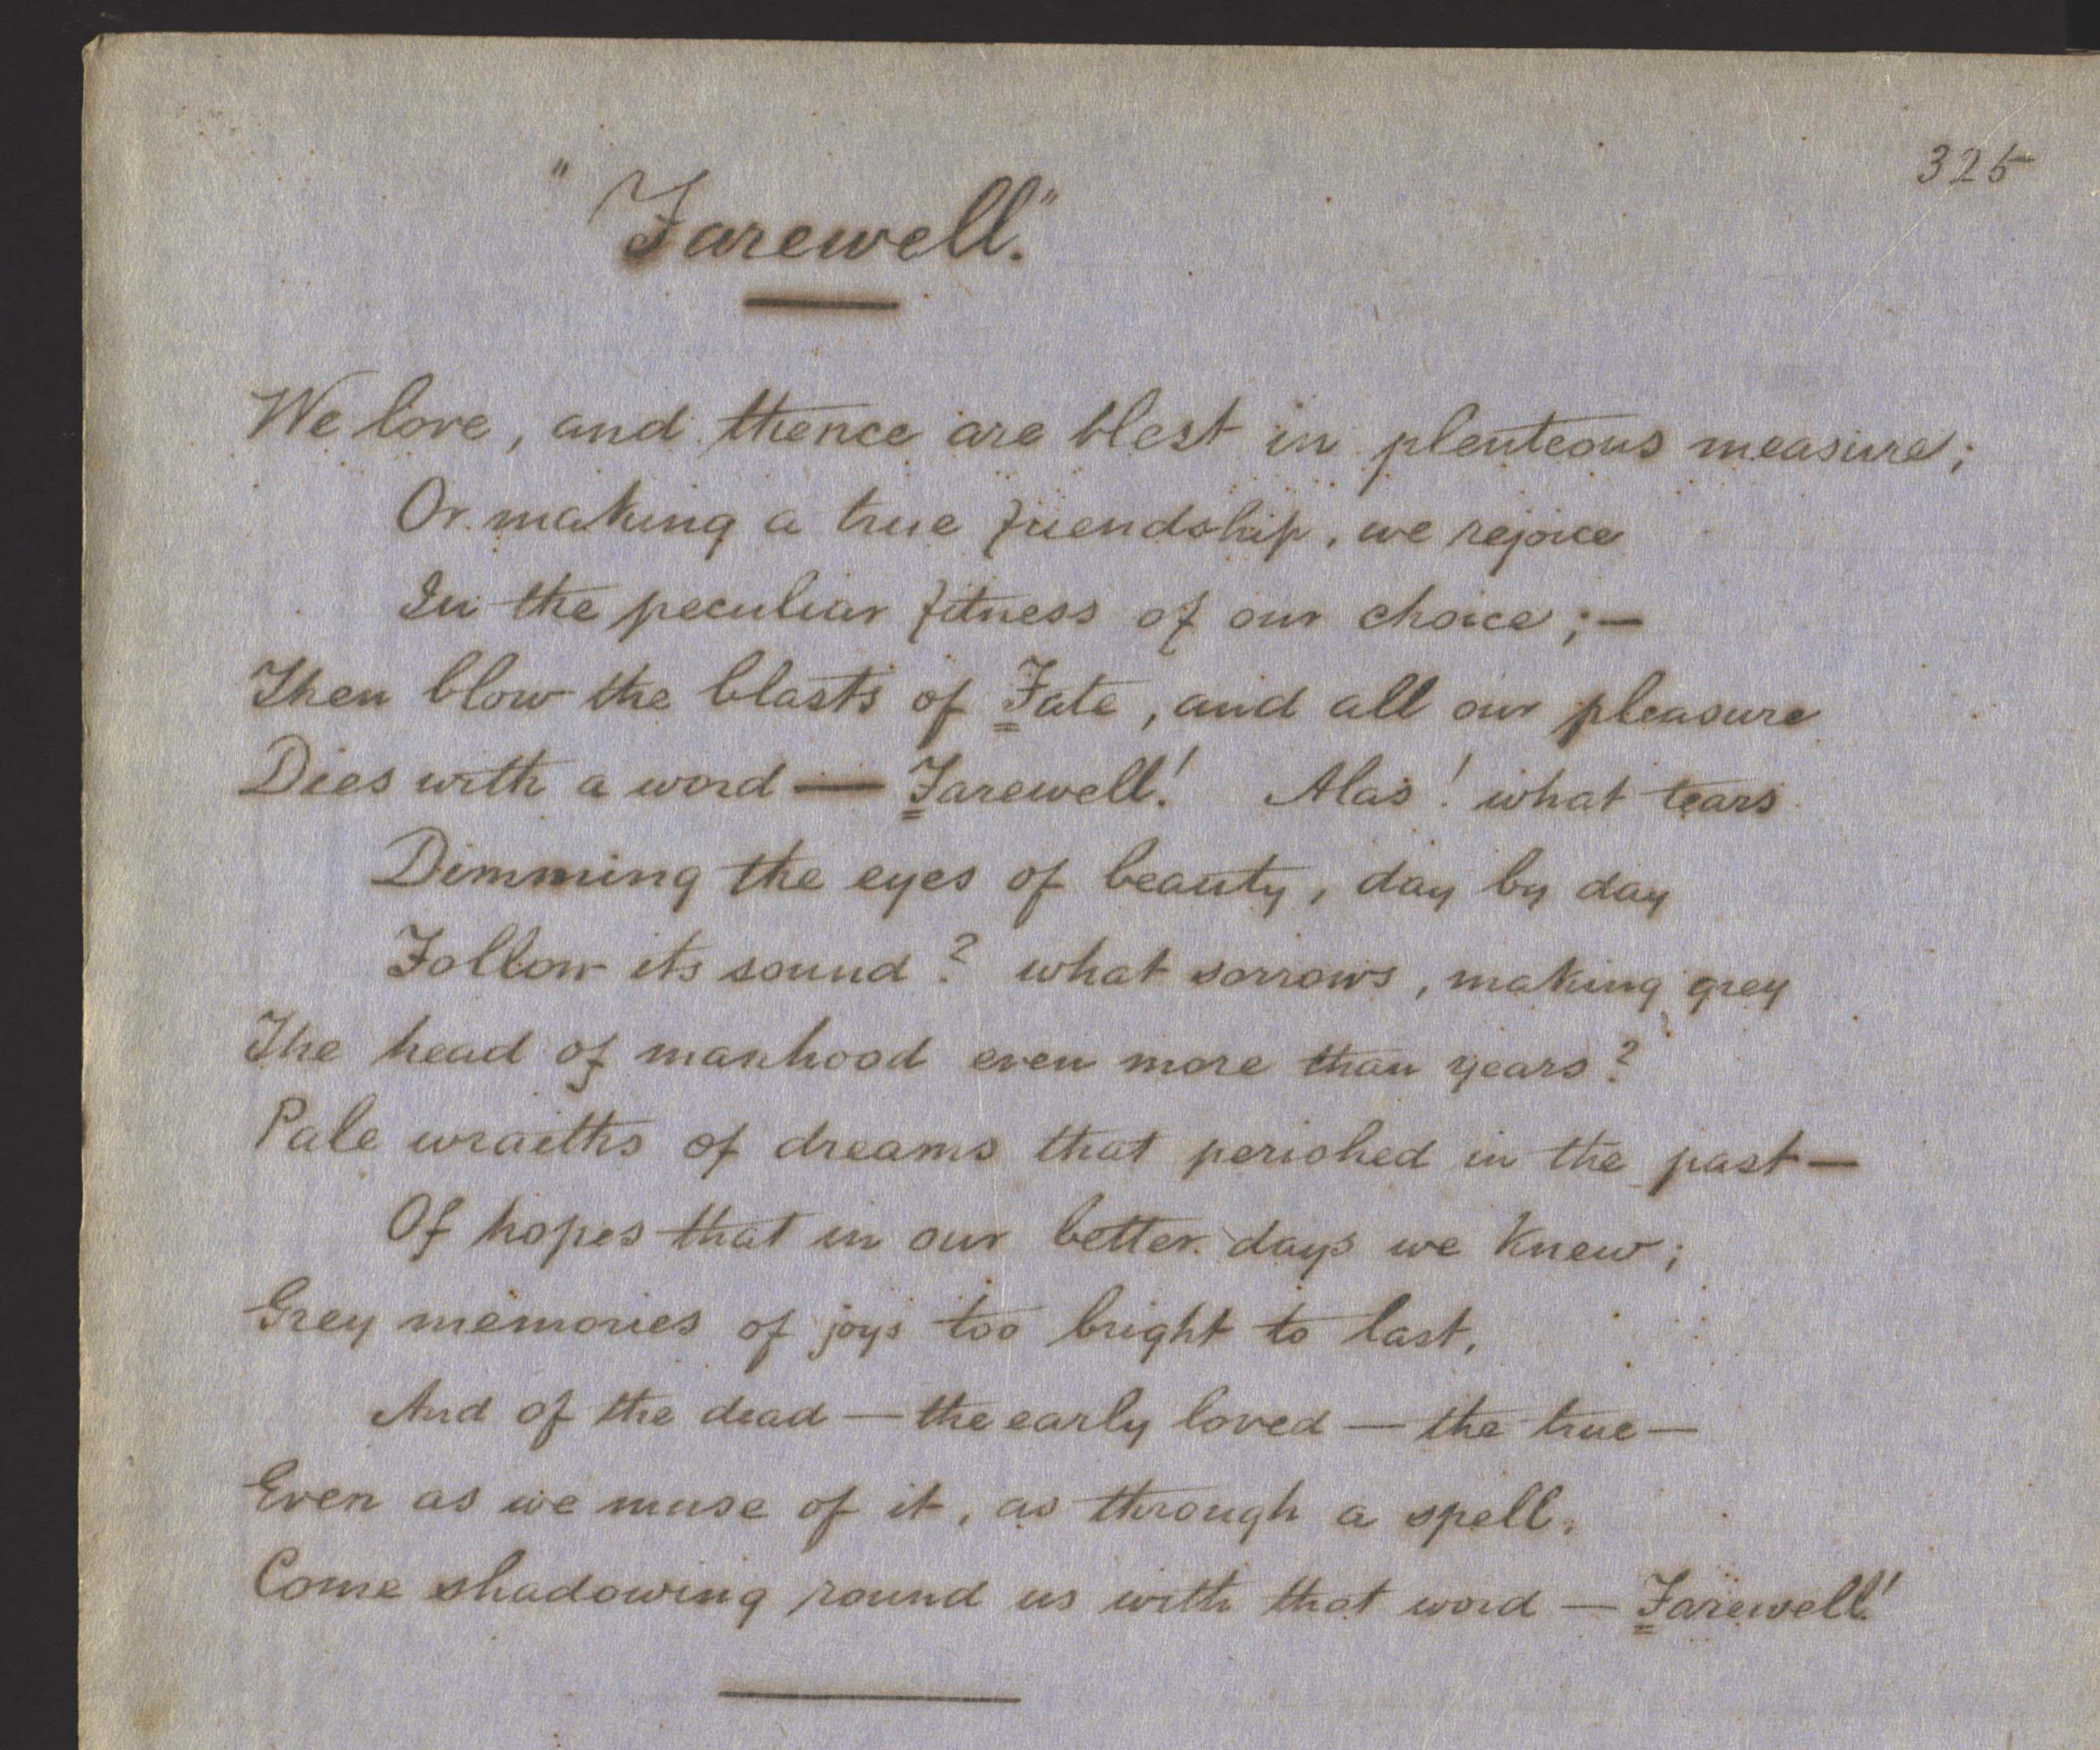 325
"Farewell."
We love, and thence are blest in plenteous measure;
Or making a true friendship, we rejoice
In the peculiar fitness of our choice;—
Then blow the blasts of Fate, and all our pleasure
Dies with a word — Farewell! Alas! what tears
Dimming the eyes of beauty, day by day
Follow its sound? what sorrows, making grey
The head of manhood even more than years?
Pale wraiths of dreams that perished in the past —
Of hopes that in our better days we knew;
Grey memories of joys too bright to last,
And of the dead — the early loved — the true —
Even as we muse of it, as through a spell,
Come shadowing round us with that word — Farewell!